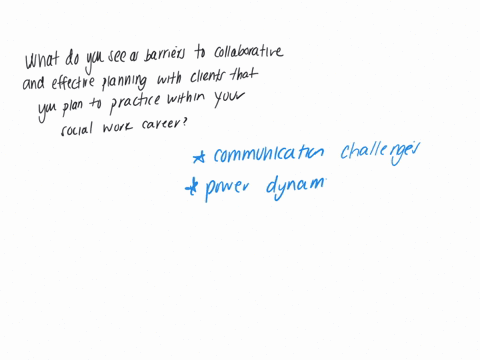 What do you see as barriers to collaborative
and effective planning with clients that
you plan to practice within your
social work career?
* communication challenges
* power dynam